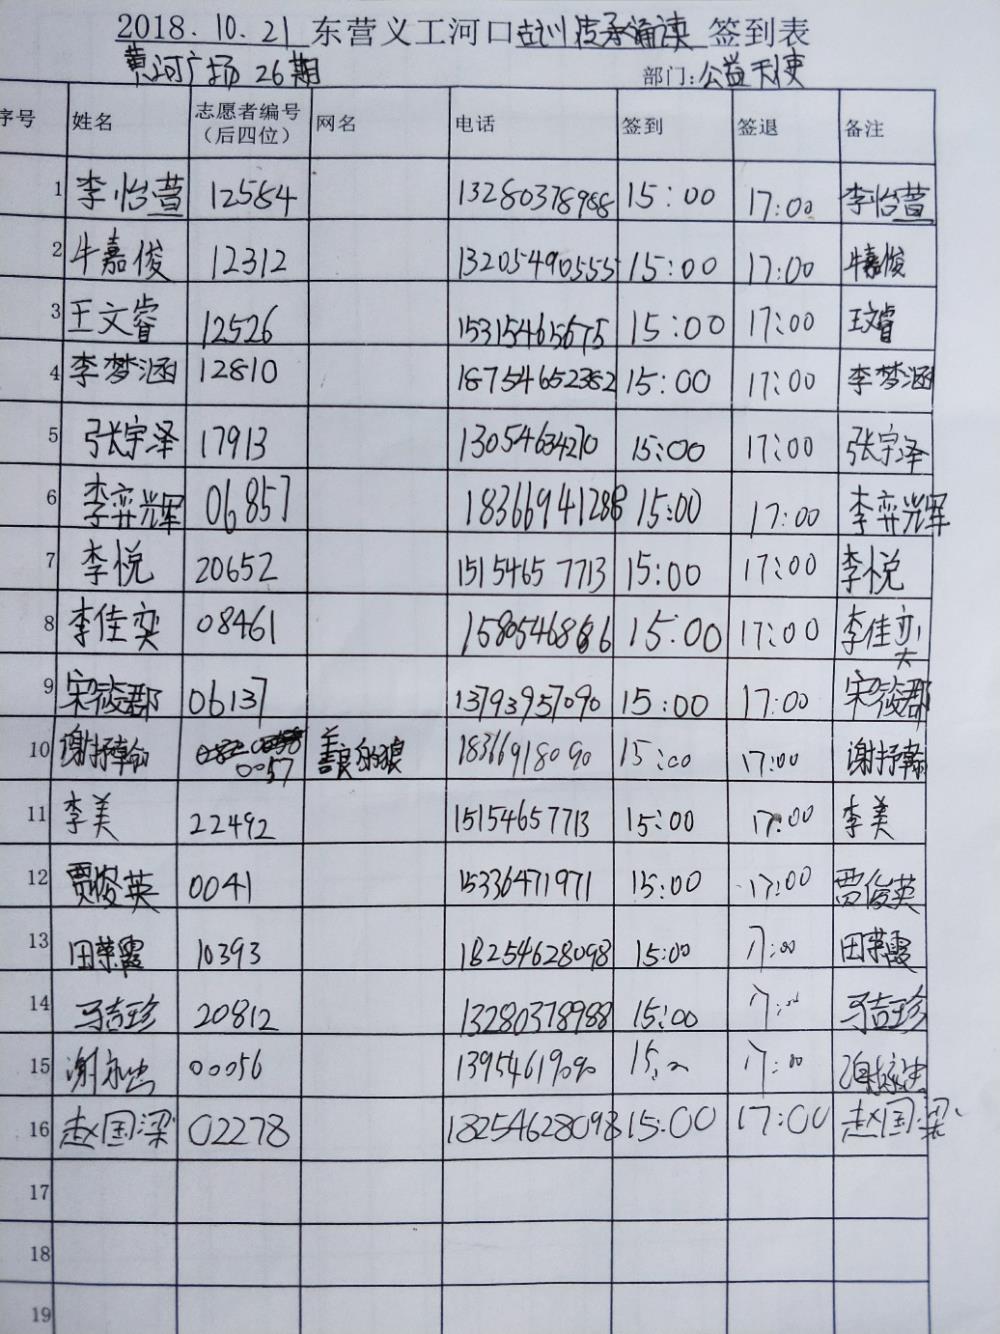 2018.10.21 东营义工河口古训传承诵读 签到表
黄河广场 26期 部门:公益天使
序号 姓名 志愿者编号（后四位） 网名 电话 签到 签退 备注
1 李怡萱 12584 13280378988 15:00 17:00 李怡萱
2 牛嘉俊 12312 13205490555 15:00 17:00 牛嘉俊
3 王文睿 12526 15315465675 15:00 17:00 王文睿
4 李梦涵 12810 18754652382 15:00 17:00 李梦涵
5 张宇泽 17913 13054634270 15:00 17:00 张宇泽
6 李弈辉 06857 18366941288 15:00 17:00 李弈辉
7 李悦 20652 15154657713 15:00 17:00 李悦
8 李佳奕 08461 1580546866 15:00 17:00 李佳奕
9 宋筱郡 06137 13793957090 15:00 17:00 宋筱郡
10 谢抒翰 0057 善良的狼 18366918090 15:00 17:00 谢抒翰
11 李美 22492 15154657713 15:00 17:00 李美
12 贾俊英 0041 15336471971 15:00 17:00 贾俊英
13 田荣霞 10393 18254628098 15:00 17:00 田荣霞
14 马吉珍 20812 13280378988 15:00 17:00 马吉珍
15 谢永忠 00056 13954619090 15:00 17:00 谢永忠
16 赵国梁 02278 18254628098 15:00 17:00 赵国梁
17
18
19